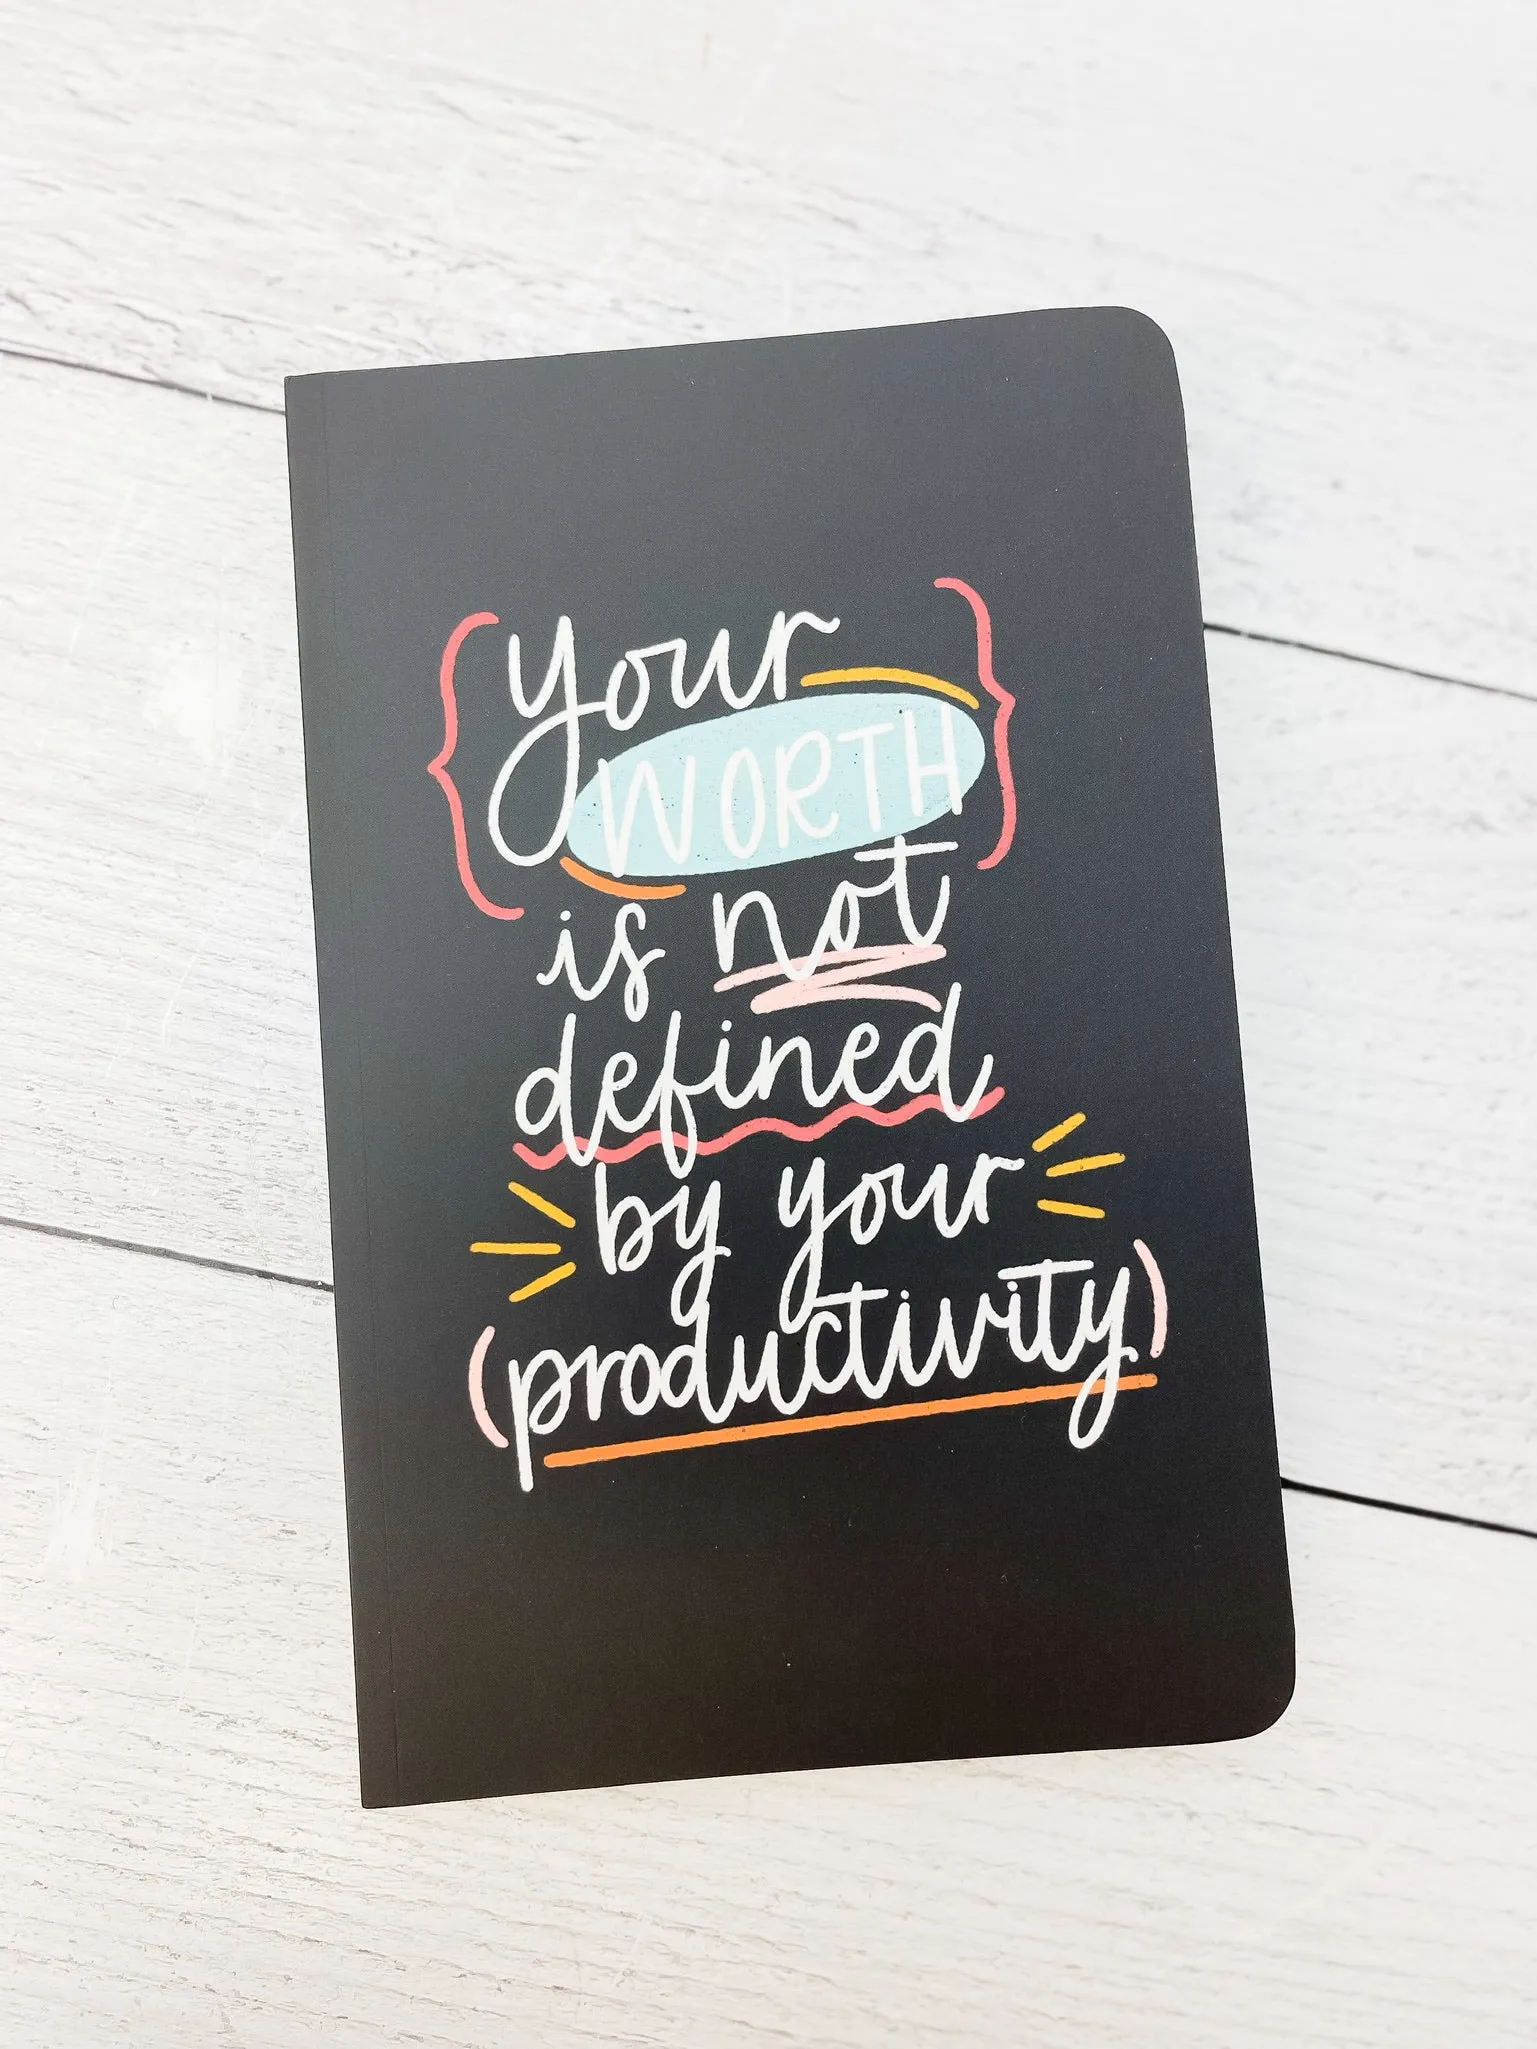 your
WORTH
is not
defined
by your
(productivity)